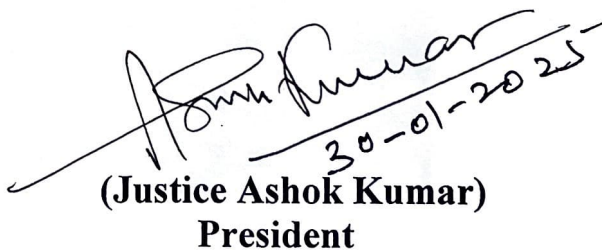 Ashok Kumar
30-01-2025
(Justice Ashok Kumar)
President